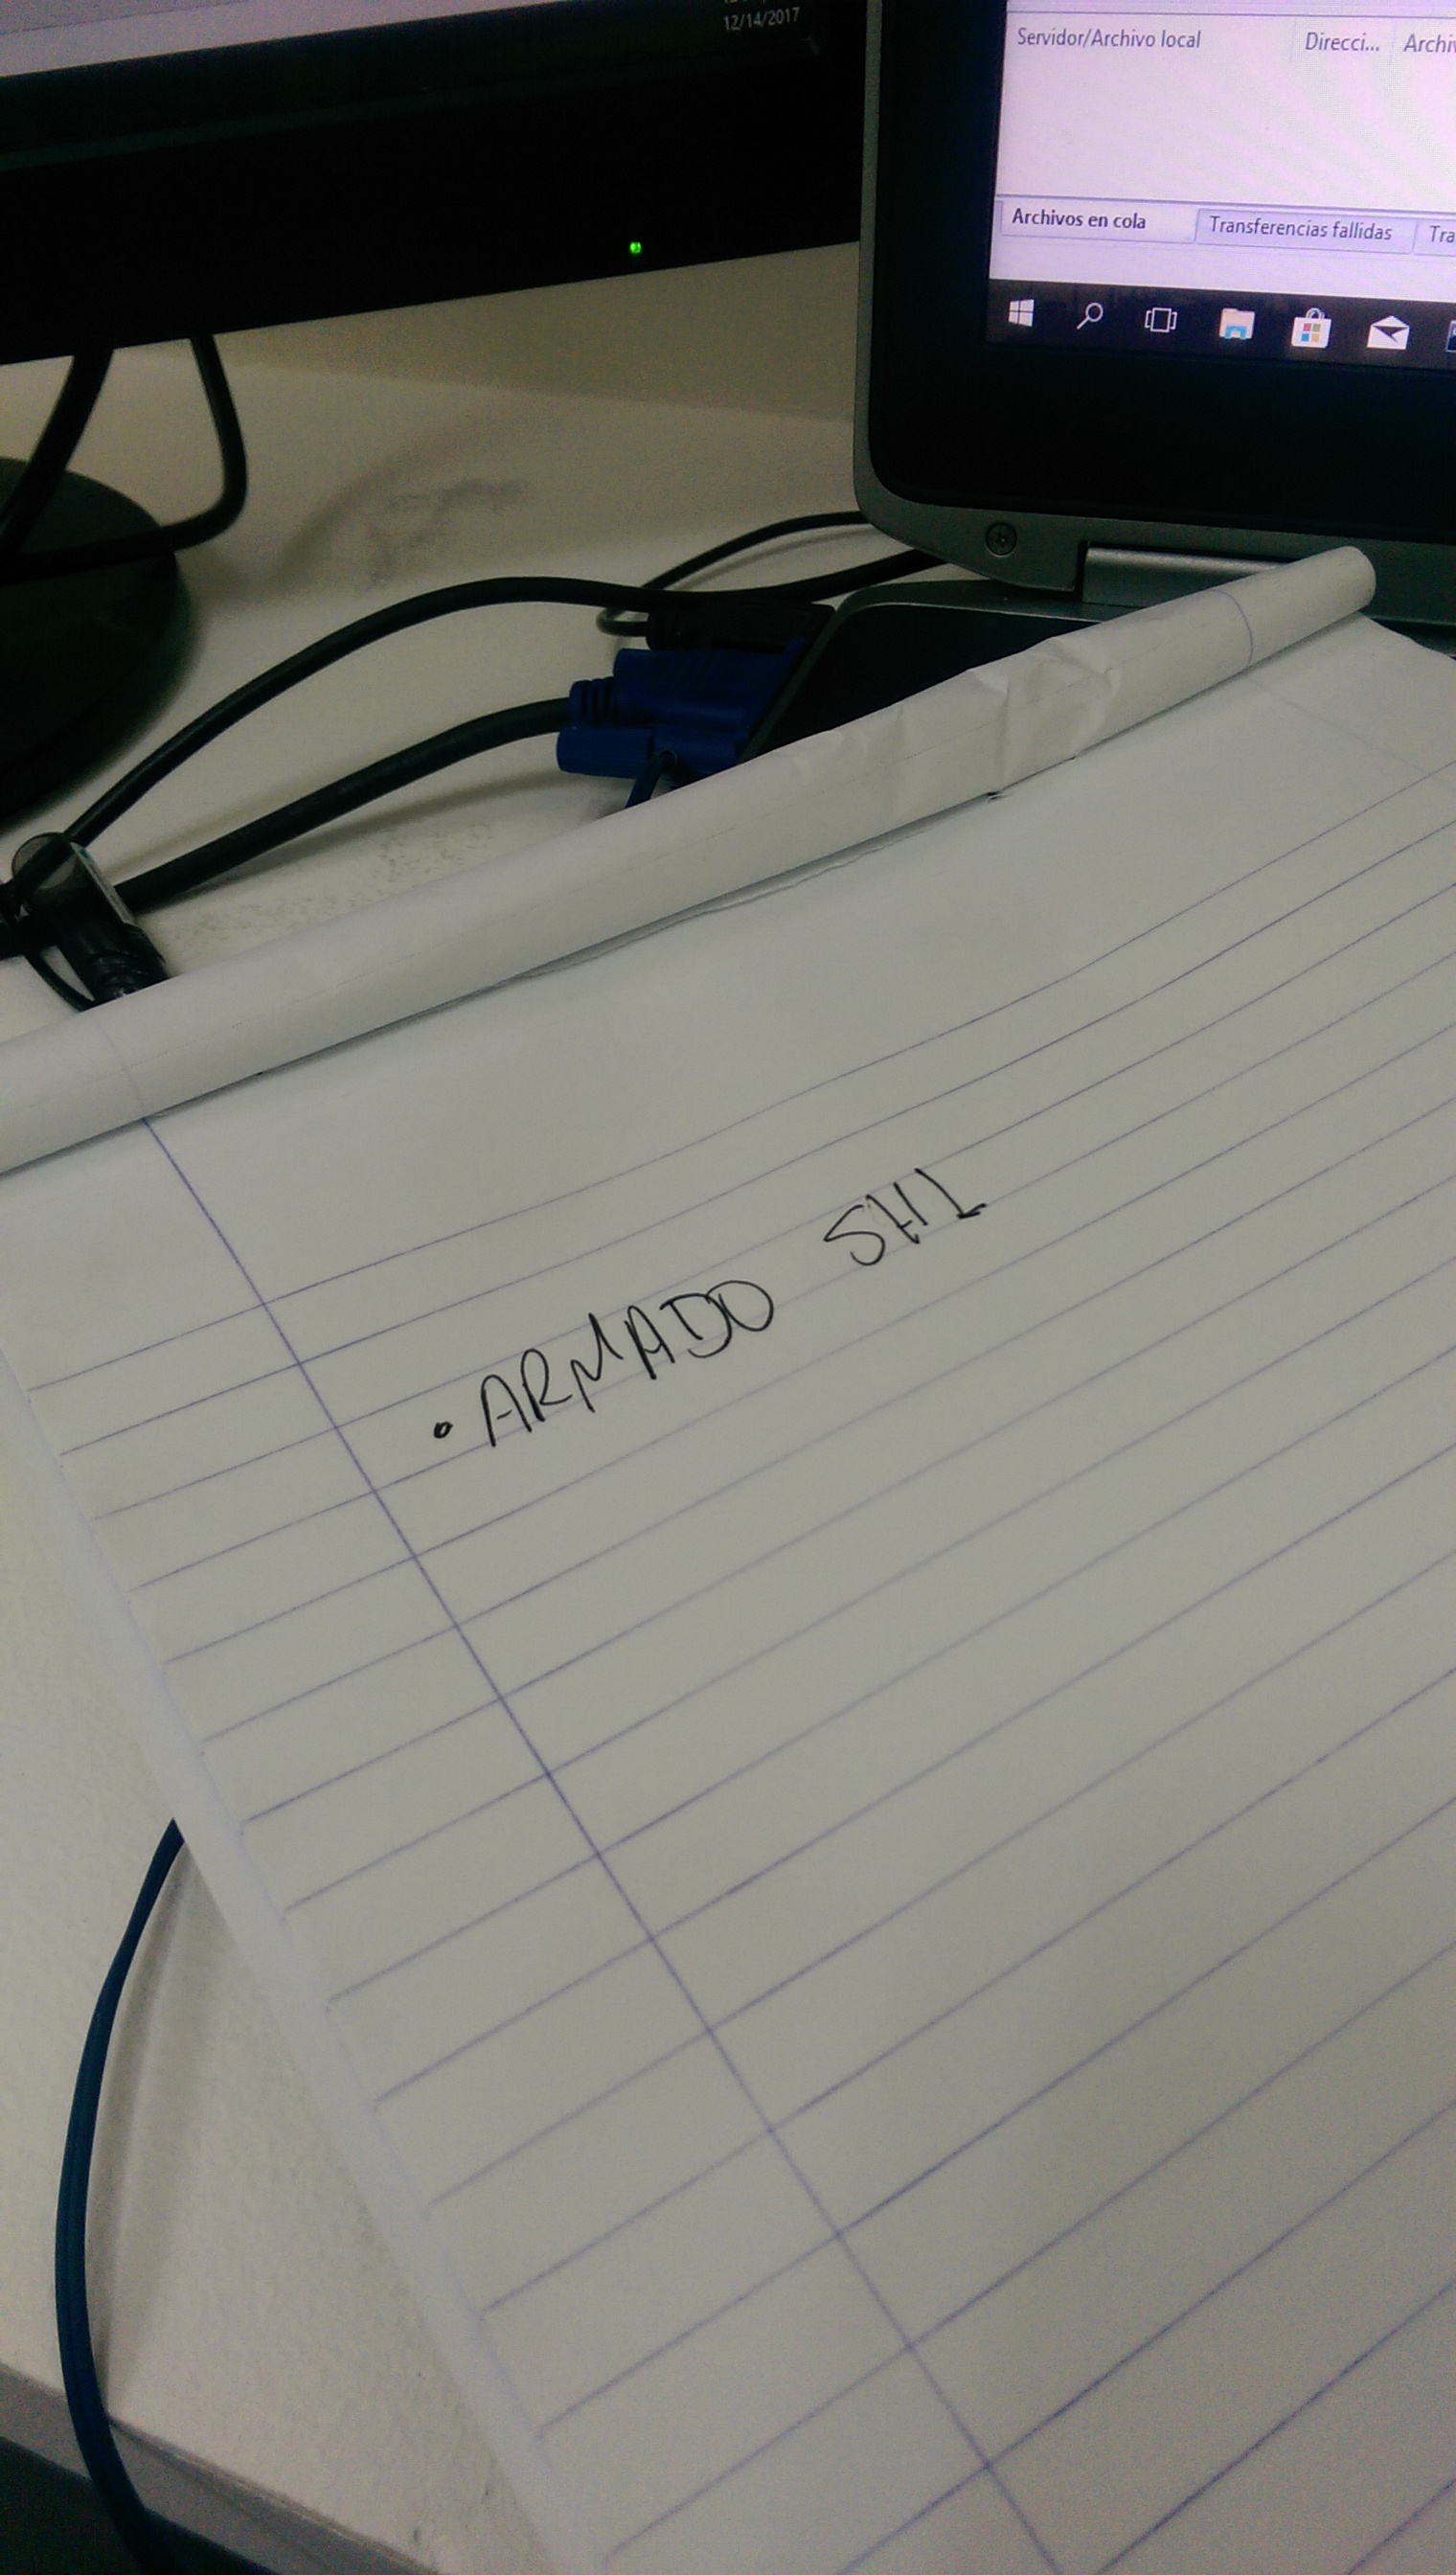 12/14/2017
Servidor/Archivo local Direcci... Archiv
Archivos en cola Transferencias fallidas Tra
• ARMADO SH1